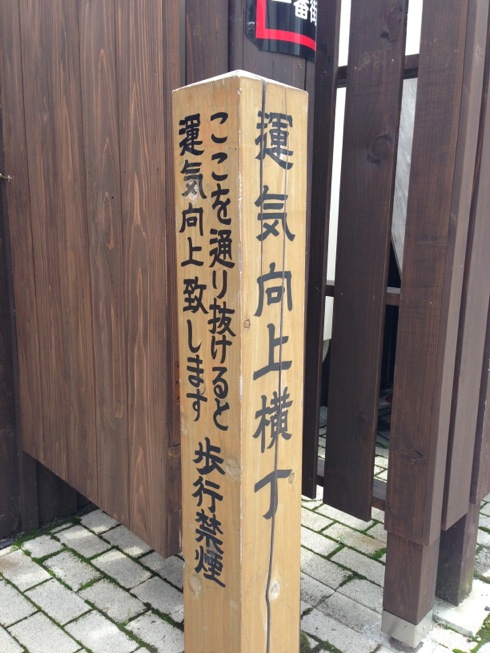 運気向上横丁
ここを通り抜けると
運気向上致します
歩行禁煙
番街